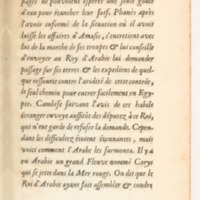 pages ne pouvoient esperer une seule goute
d'eau pour étancher leur soif. Phanés après
l'avoir informé de la situation où il avoit
laissé les affaires d'Amasis, s'entretient avec
lui de la marche de ses troupes & lui conseilla
d'envoyer au Roy d'Arabie lui demander
passage sur ses terres & les expediens de quel-
que ressource contre l'aridité de cette contrée,
le seul chemin pour entrer facilement en Egy-
pte. Cambise suivant l'avis de cet habile
étranger envoye aussitôt des députez à ce Roi,
qui n'eut garde de refuser la demande. Cepen-
dant les difficultez étoient étonnantes, mais
voici comment l'Arabe les surmonta. Il y a
en Arabie un grand Fleuve nommé Corys
qui se jette dans la Mer rouge. On dit que le
Roi d'Arabie ayant fait assembler & coudre